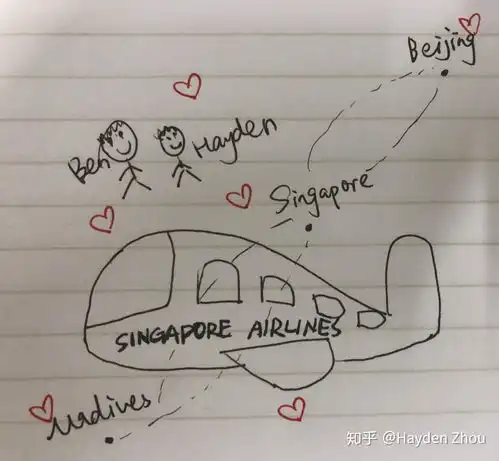 Beijing
Ben
Hayden
Singapore
SINGAPORE AIRLINES
Madives
知乎 @Hayden Zhou